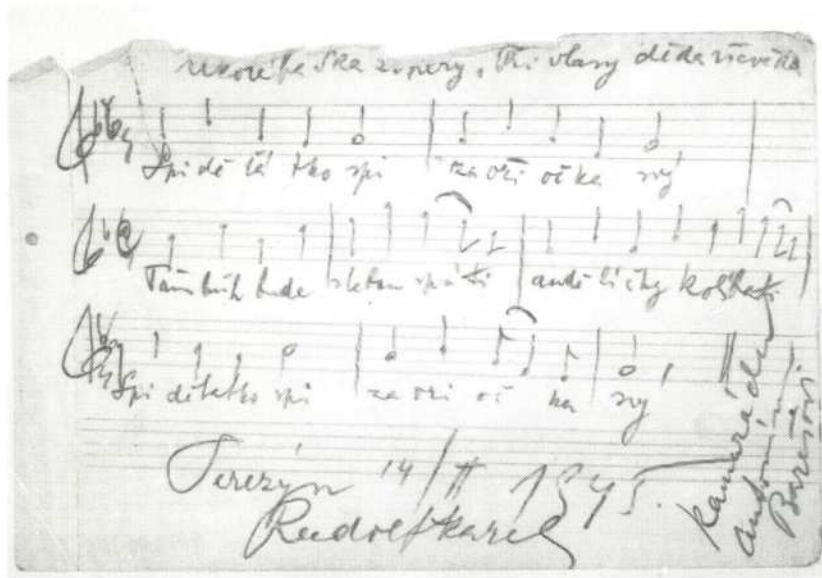 ukolébavka z opery "Tři vlasy děda vševěda
Spi děťá tko spi zavři očka svý
Tám bůh bude s tebou spáti anděličky kolíbati
Spi děťátko spi zavři oč ka svý
Terezín 14/II 1945.
Rudolf Karel
Kamarádu
Antonínu
Barešovi